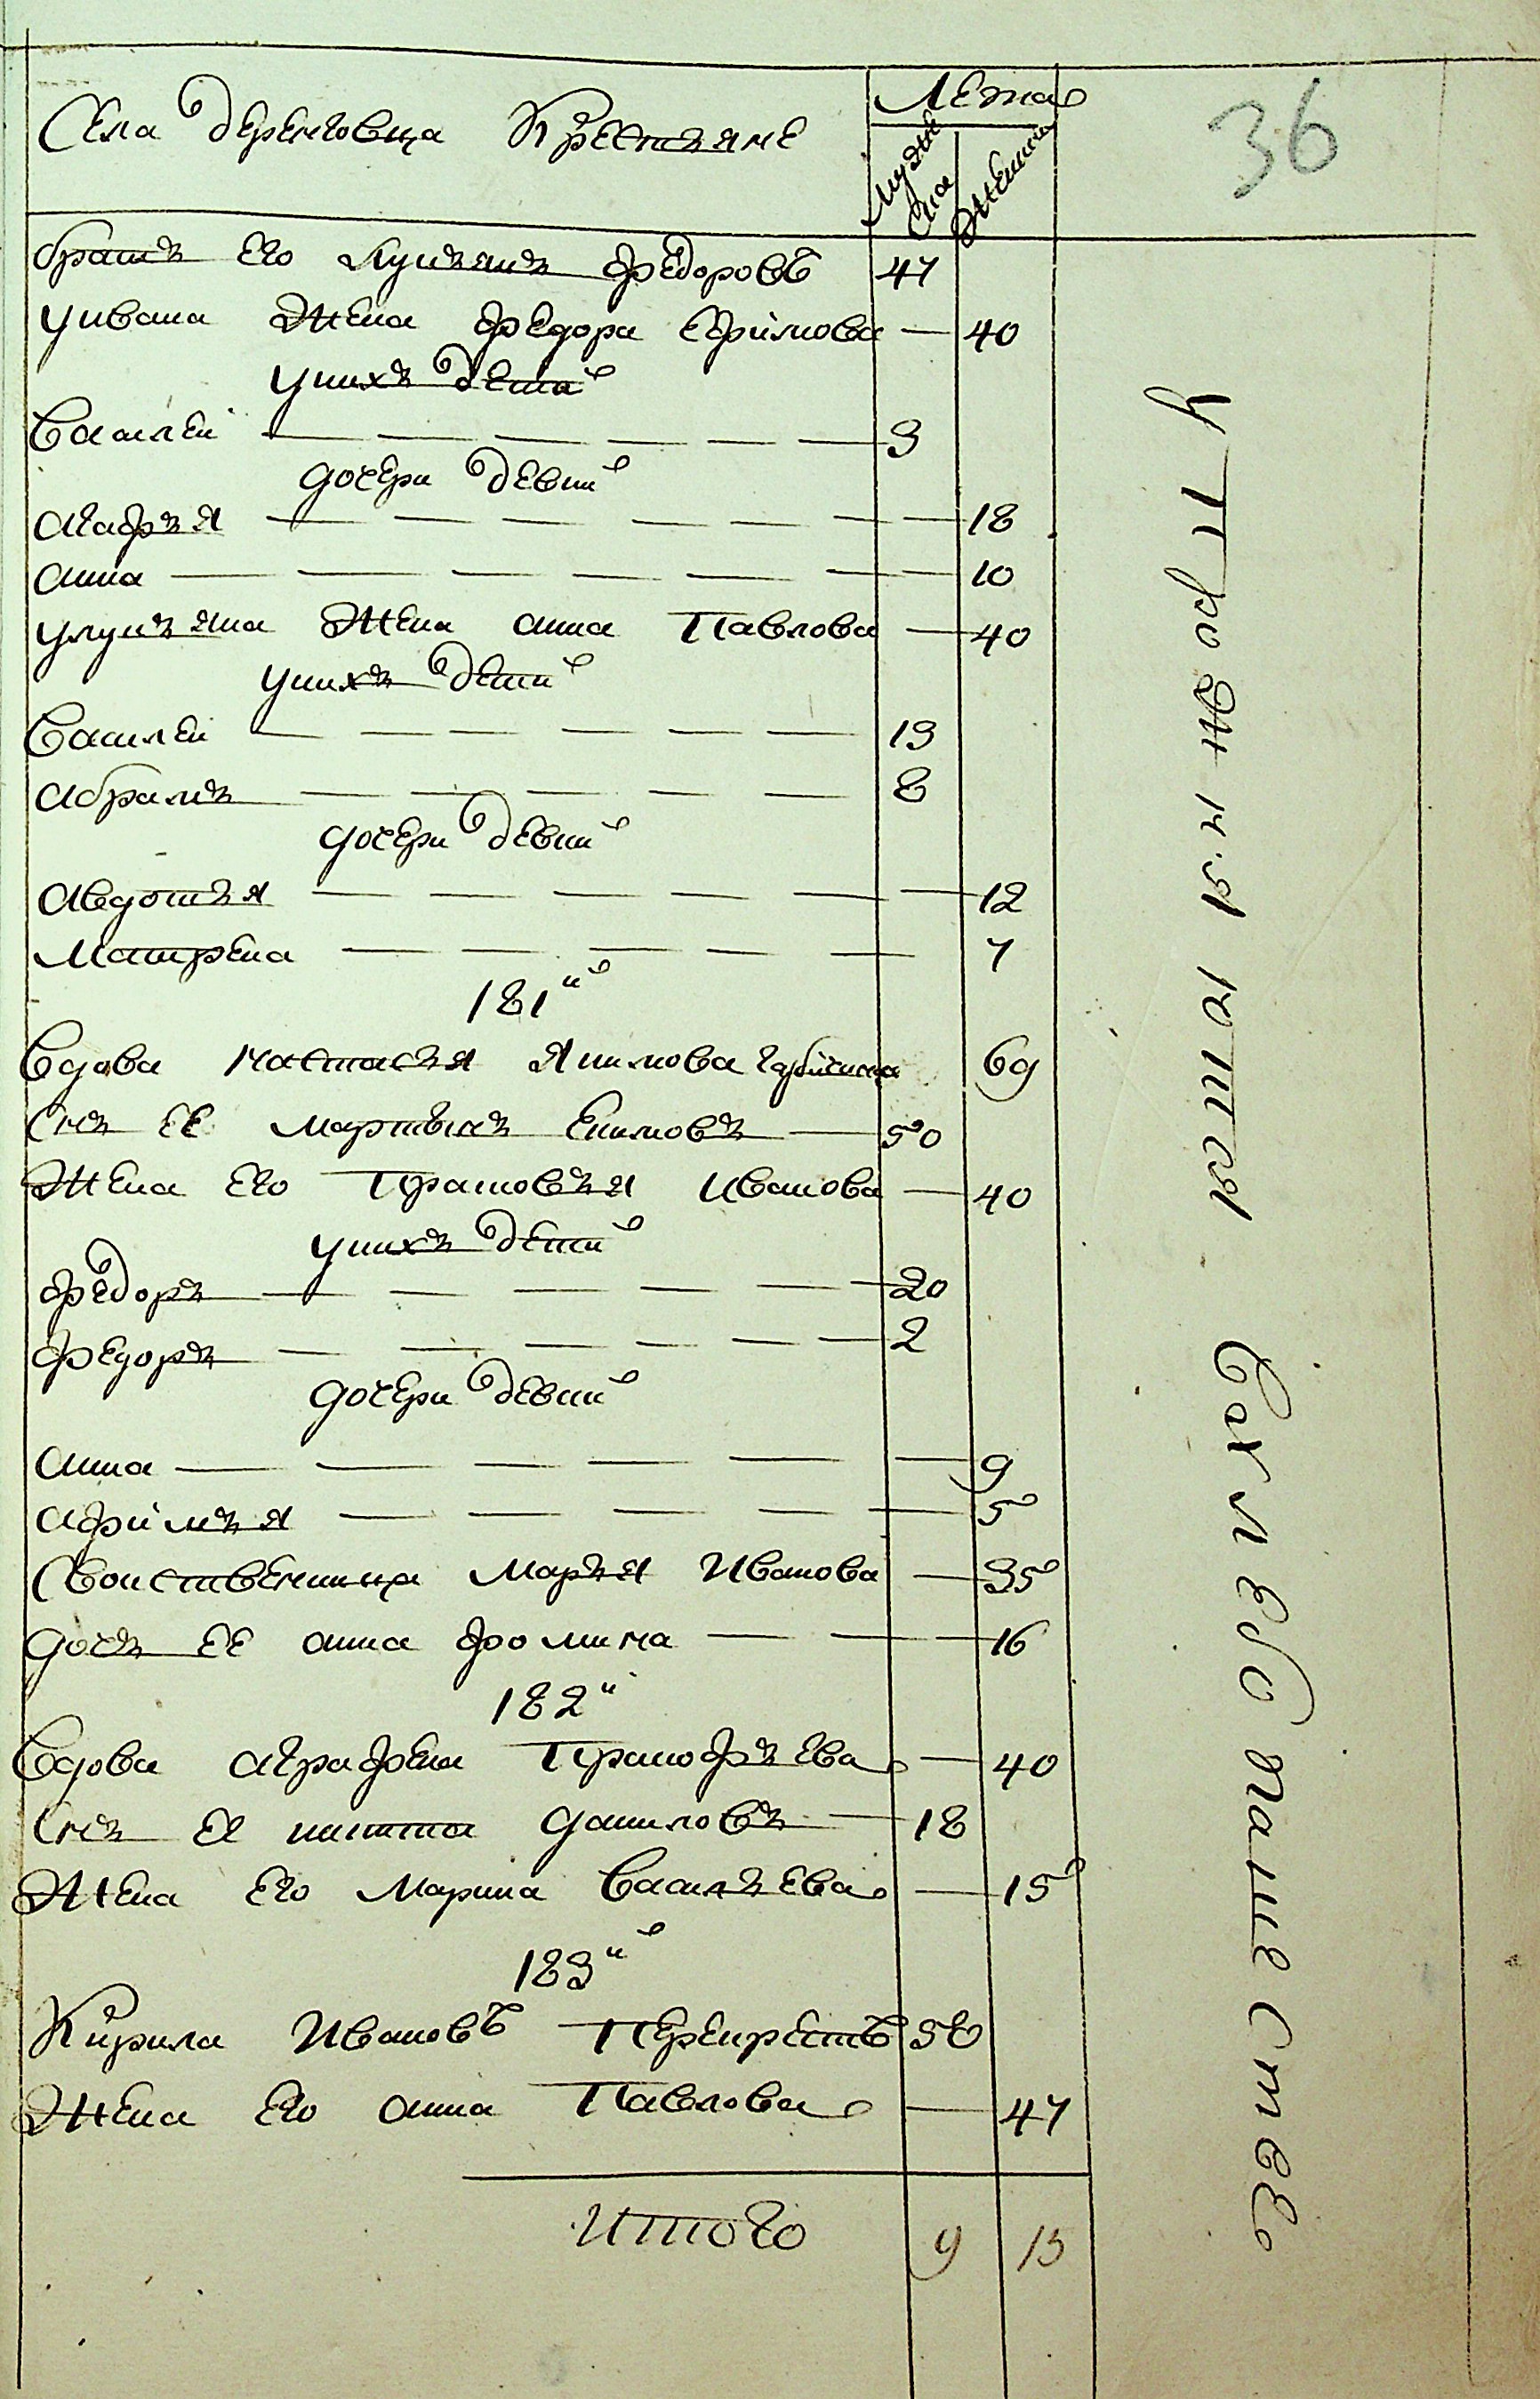 Села Деренговца Крестьяне
Лета
Мужеска
Женска
36
братъ Его Лукьянъ Федоровъ 47
уивана Жена Федора Ефимова — 40
унихъ Дети
Василей 3
дочери Девки
Агафья 18
анна 10
улукьяна Жена анна Павлова — 40
унихъ Дети
Василей 13
абрамъ 8
дочери Девки
Авдотья 12
Матрена 7
181
Вдова Настасья Якимова 69
Снъ ЕЕ мартынъ Екимовъ — 50
Жена Его Прасковья Иванова — 40
унихъ Дети
Федоръ 20
Федоръ 2
дочери Девки
анна 9
афимья 5
Свойственница Марья Иванова — 35
дочь ЕЕ анна Фомина 16
182
Вдова аграфена Пракофьева — 40
Снъ Ее никита даниловъ — 18
Жена Его Марина Васильева — 15
183
Кирила Ивановъ Перекрестъ 58
Жена Его анна Павлова — 47
Итого 9 15